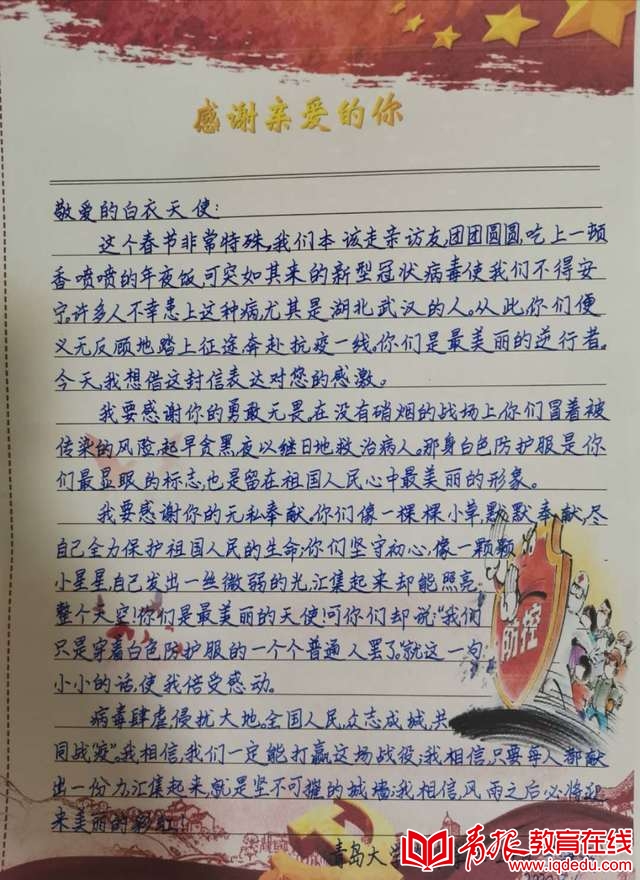 感谢亲爱的你
敬爱的白衣天使:
这个春节非常特殊。我们本该走亲访友,团团圆圆,吃上一顿
香喷喷的年夜饭,可突如其来的新型冠状病毒使我们不得安
宁,许多人不幸患上这种病,尤其是湖北武汉的人。从此,你们便
义无反顾地踏上征途奔赴抗疫一线。你们是最美丽的逆行者。
今天,我想借这封信表达对您的感激。
我要感谢你的勇敢无畏。在没有硝烟的战场上你们冒着被
传染的风险,起早贪黑,夜以继日地救治病人。那身白色防护服是你
们最显眼的标志,也是留在祖国人民心中最美丽的形象。
我要感谢你的无私奉献。你们像一棵棵小草,默默奉献,尽
自己全力保护祖国人民的生命;你们坚守初心,像一颗颗
小星星,自己发出一丝微弱的光,汇集起来却能照亮
整个天空!你们是最美丽的天使!可你们却说:“我们
只是穿着白色防护服的一个个普通人罢了。”就这一句
小小的话,使我倍受感动。
防控
病毒肆虐,侵扰大地。全国人民,众志成城,共
同战“疫”。我相信,我们一定能打赢这场战役;我相信,只要每人都献
出一份力,汇集起来,就是坚不可摧的城墙;我相信,风雨之后必将迎
来美丽的彩虹!
青岛大学
青报教育在线
www.iqdedu.com